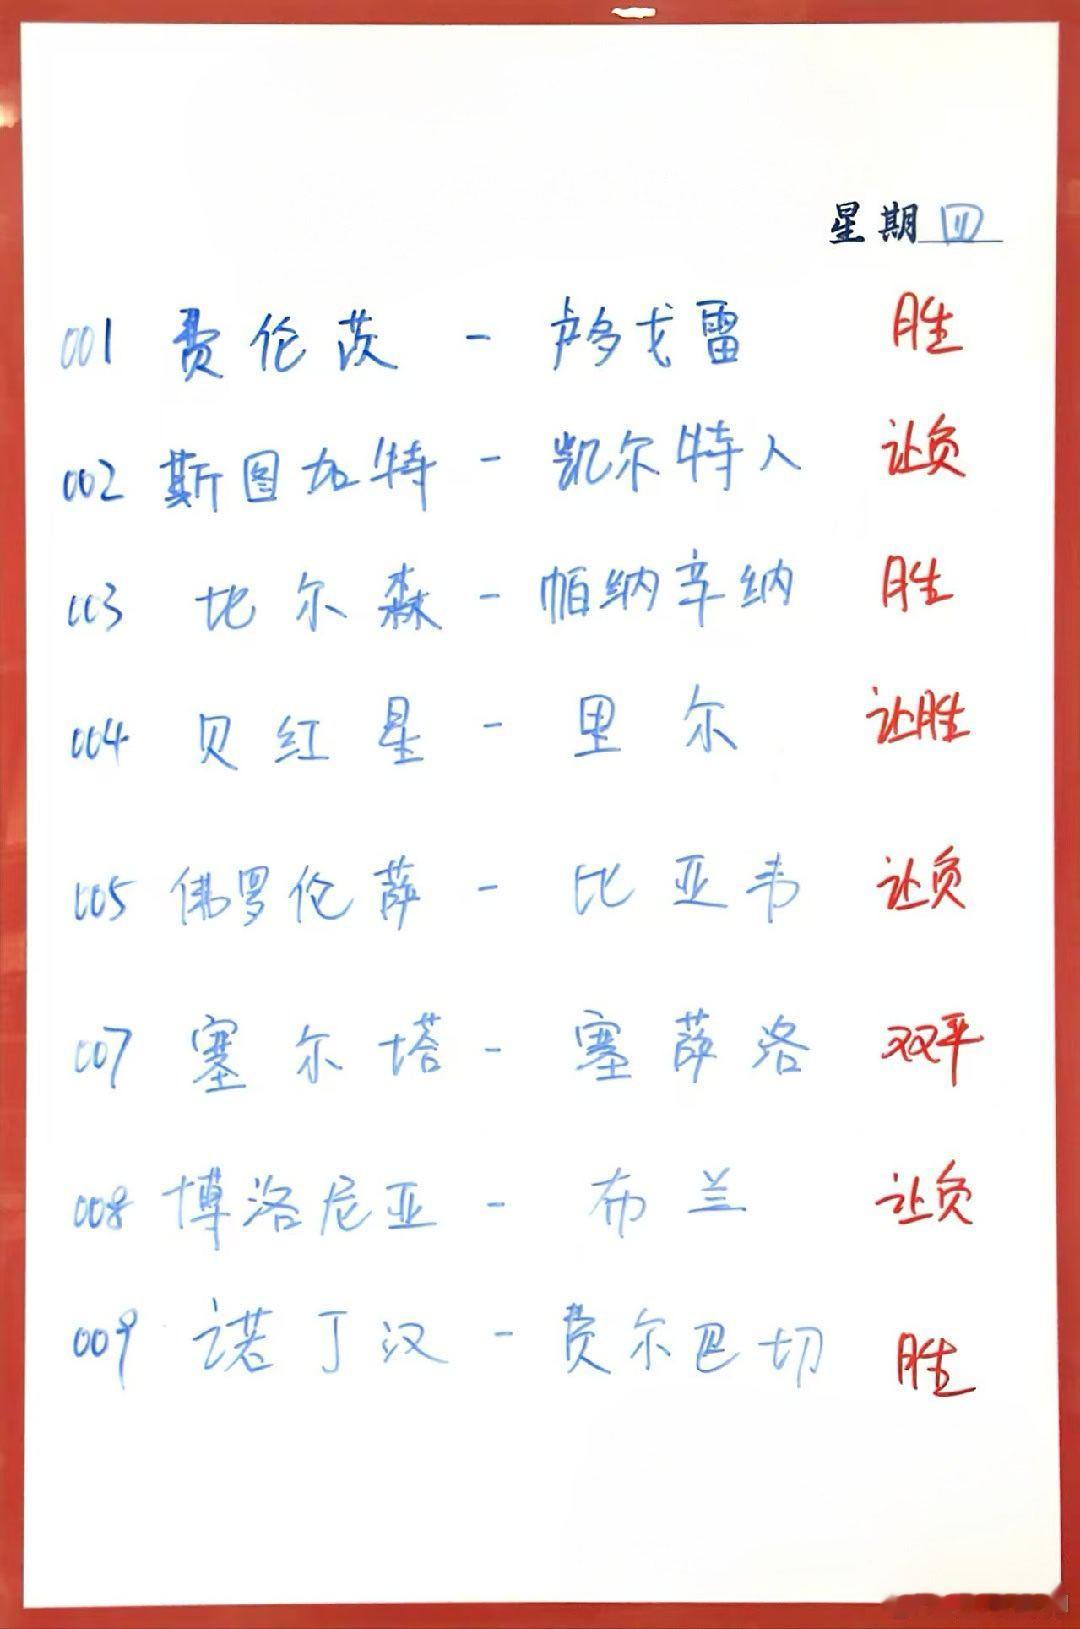 星期四
001 费伦茨 - 卢多戈雷 胜
002 斯图加特 - 凯尔特人 让负
003 比尔森 - 帕纳辛纳 胜
004 贝红星 - 里尔 让胜
005 佛罗伦萨 - 比亚韦 让负
007 塞尔塔 - 塞萨洛 双平
008 博洛尼亚 - 布兰 让负
009 诺丁汉 - 费尔巴切 胜